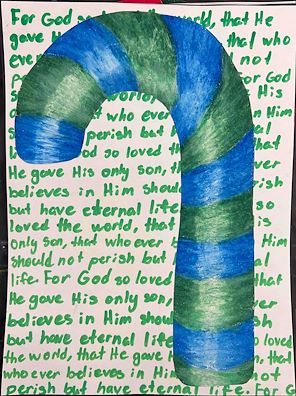 For God so world, that He
gave that who
not
God
world, His
who ever
perish but
God so loved th
He gave His only son, th
believes in Him shou
but have eternal life. so
loved the world, that
only son, that who ever b Him
should not perish but
life. For God so loved that
He gave His only son,
believes in Him shou
but have eternal life loved
the world, that He gave that
who ever believes in Him not
perish but have eternal life. For G